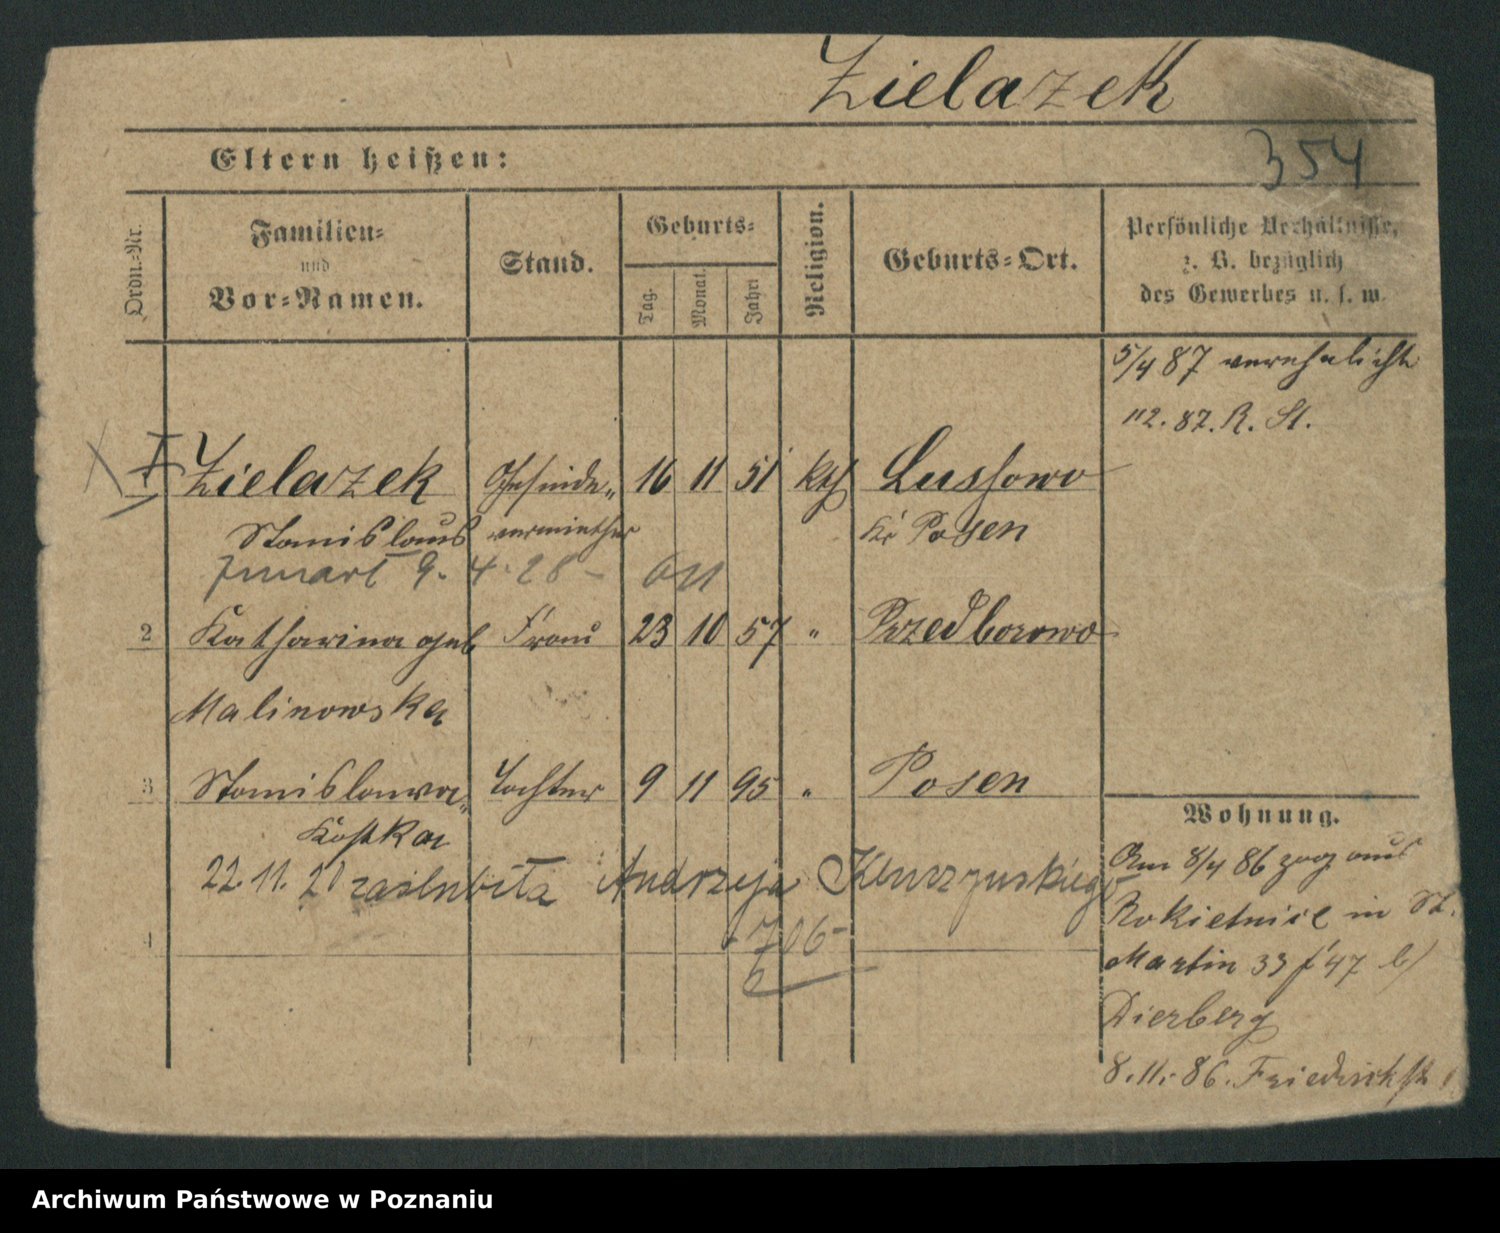 Zielazek
354
Eltern heißen:
Ordn.-Nr.
Familien-
und
Vor-Namen.
Stand.
Geburts-
Tag.
Monat.
Jahr.
Religion.
Geburts-Ort.
Persönliche Verhältnisse,
z. B. bezüglich
des Gewerbes u. s. w.
5/4 87 verehelicht
112. 87. R. St.
1 Zielazek Gesinde- 16 11 51 kth Lussowo
Stanislaus vermiether Kr Posen
Zmarł 9. 4. 28 -
2 Katharina geb Frau 23 10 57 " Przedborowo
Malinowska
3 Stanislawa, Tochter 9 11 95 " Posen
Kostka
22. 11. 20 zaślubiła Andrzeja
706-
4
Wohnung.
Am 8/4 86 zog aus
Rokietnice in St.
Martin 33 f 47 b/
Dierberg
8. 11. 86. Friedrichst
Archiwum Państwowe w Poznaniu